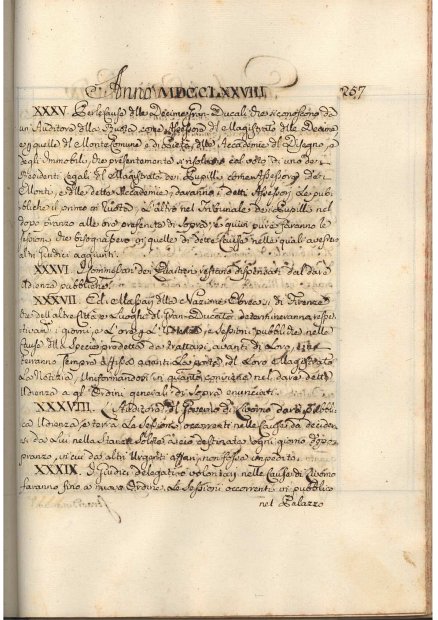 Anno MDCCLXXVIII. 257
XXXV. Per le Cause delle Decime Gran-Ducali, che si conoscono da
un Auditore della Ruota come Assessore del Magistrato delle Decime
e quelle del Monte Comune e di quelle delle Accademie del Disegno, e
degli Immobili, che presentemente si risolvono col voto di uno dei
Residenti Legali del Magistrato dei Pupilli come Assessore dei
Monti, e delle dette Accademie, daranno i detti Assessori le pub-
bliche il primo in Ruota, e l'altro nel Tribunale dei Pupilli nel
dopo pranzo alle ore presenti di sopra, e quivi pure faranno le
sessioni, che bisognassero in quelle di dette Cause nelle quali avessero
altri Giudici aggiunti.
XXXVI. I Commissari dei Quartieri restano dispensati dal dare
Udienza pubblica.
XXXVII. Ed i Massari della Nazione Ebrea sì di Firenze
che dell'altre Città e Luoghi del Gran-Ducato determineranno respet-
tivamente i giorni, e l'ore per le Sessioni pubbliche nelle
Cause della specie predetta da trattarsi avanti di Loro, e
terranno sempre affissa avanti la porta del Loro Magistrato
la Notizia, uniformandosi in quanto conviene nel dare dette
Udienze a gl'Ordini generali di sopra enunciati.
XXXVIII. L'Auditore del Governo di Livorno darà pubbli-
ca Udienza, e terrà le Sessioni occorrenti nelle Cause da decider-
si da Lui nella stanza solita a ciò destinata ogni giorno dopo
pranzo, in cui da altri Urgenti affari non fosse impedito.
XXXIX. I Giudici delegati o volontari nelle Cause di Livorno
faranno fino a nuovo Ordine le Sessioni occorrenti in pubblico
nel Palazzo